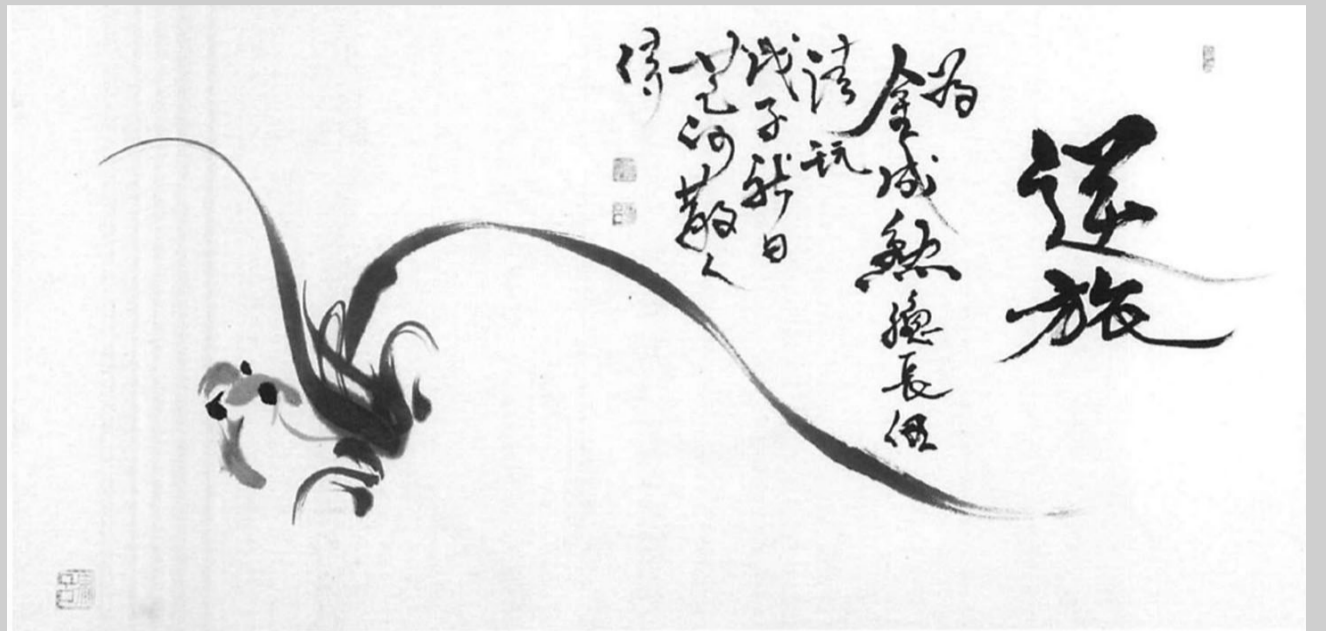 逆旅
為
金成勲總長
清玩
戊子秋日
芝河散人